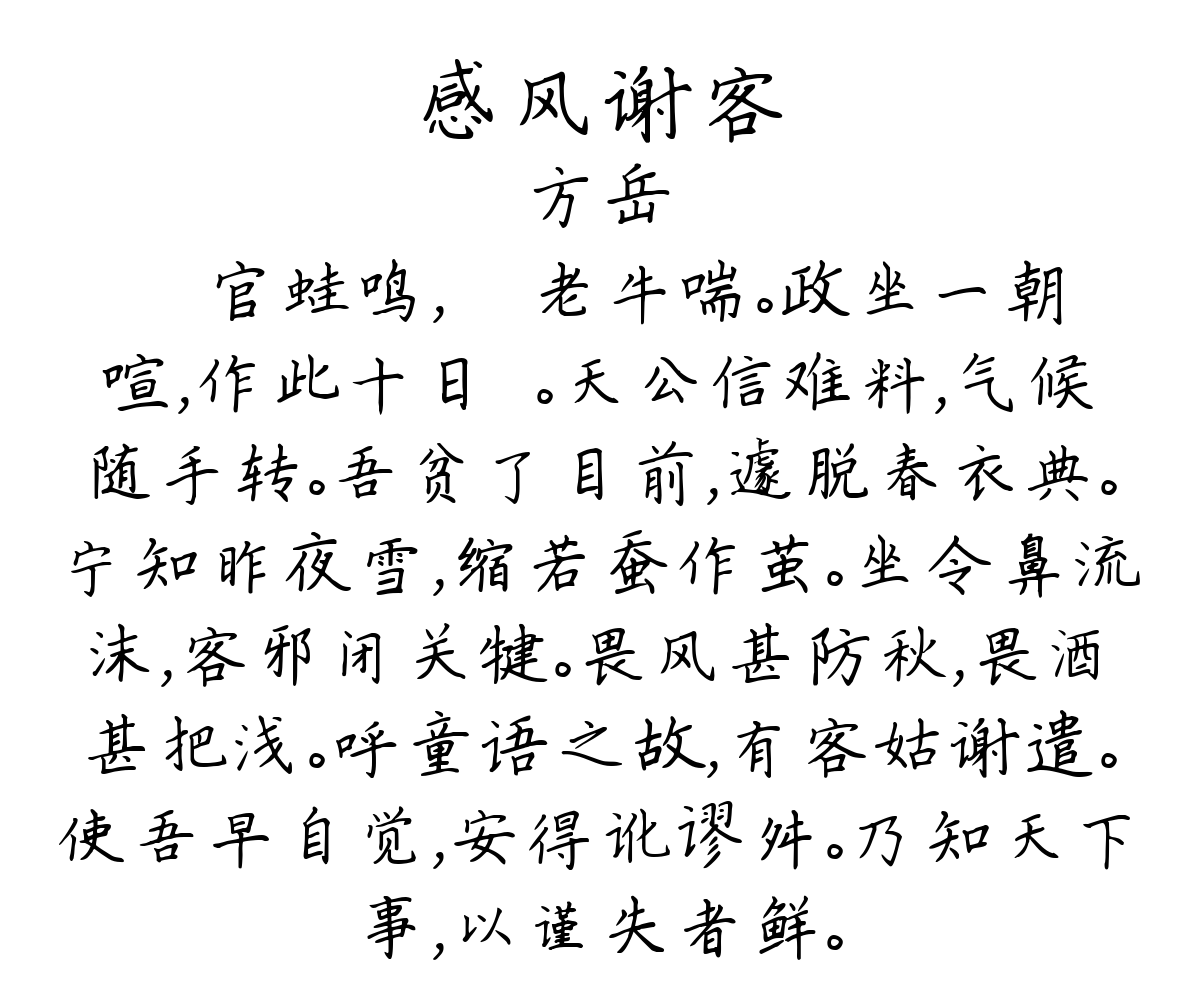 感风谢客
方岳
官蛙鸣, 老牛喘。政坐一朝
喧,作此十日 。天公信难料,气候
随手转。吾贫了目前,遽脱春衣典。
宁知昨夜雪,缩若蚕作茧。坐令鼻流
沫,客邪闭关犍。畏风甚防秋,畏酒
甚把浅。呼童语之故,有客姑谢遣。
使吾早自觉,安得讹谬舛。乃知天下
事,以谨失者鲜。